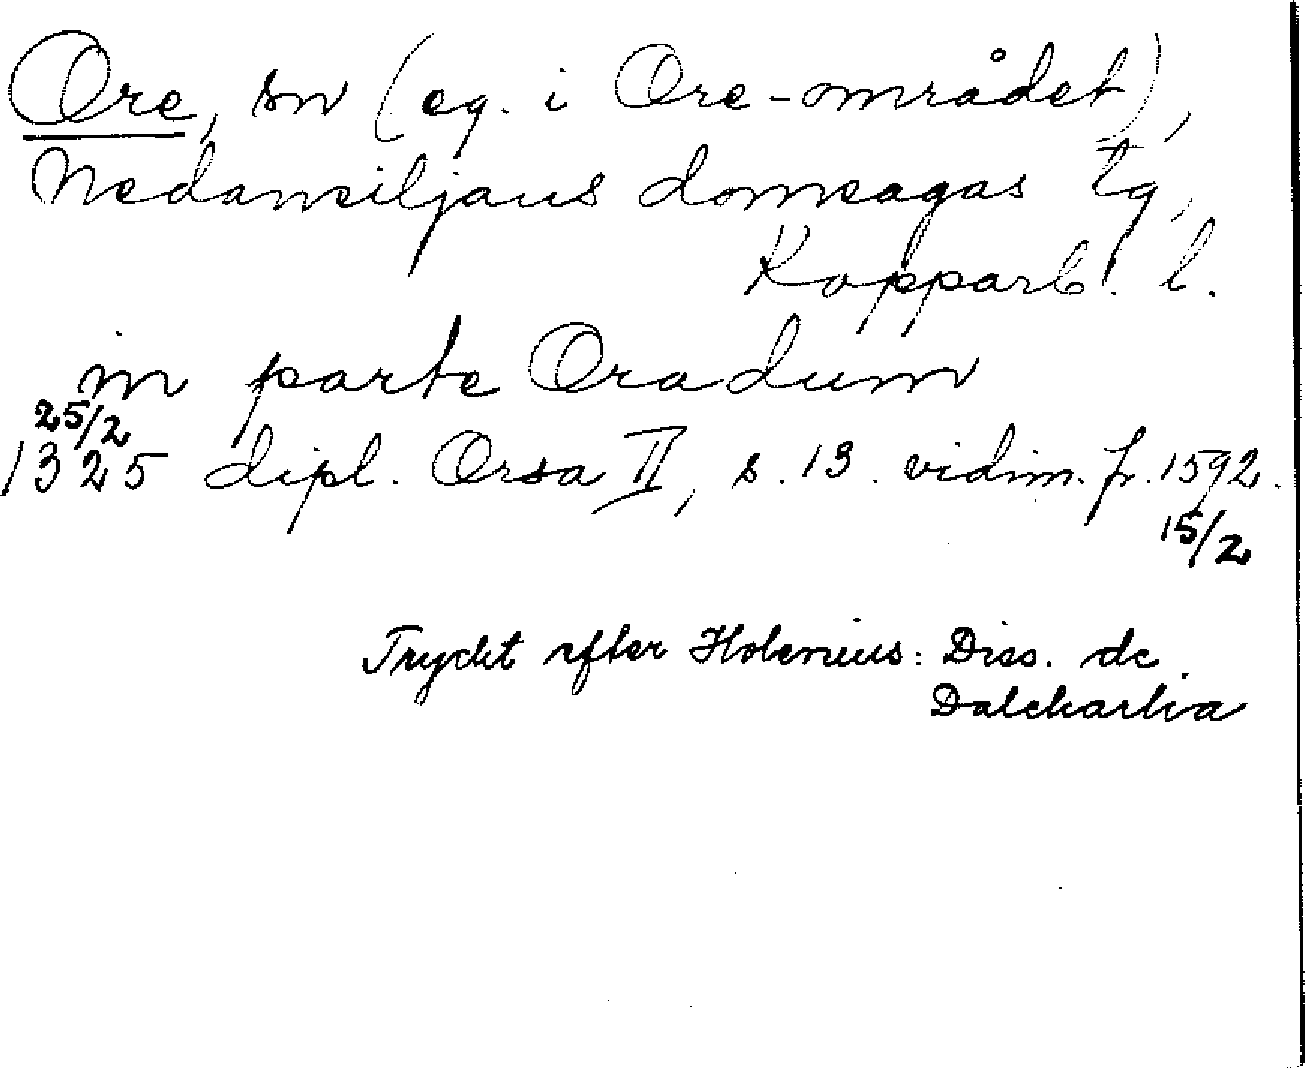 Ore, sn (eg. i Ore-området),
Nedansiljans domsagas tg,
Kopparb. l.
in parte Oradum
25/2
1325 dipl. Orsa II, s. 13. vidim. fr. 1592.
15/2
Tryckt efter Holenius: Diss. de
Dalekarlia